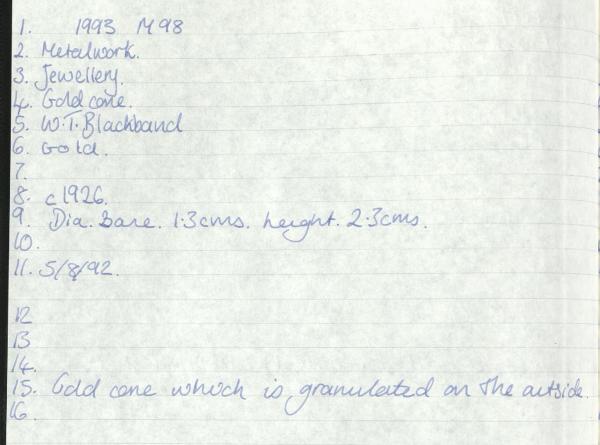 1. 1993 M98
2. Metalwork.
3. Jewellery.
4. Gold cone.
5. W.T. Blackband
6. Gold.
7.
8. c1926.
9. Dia. Base. 1.3cms. height. 2.3cms.
10.
11. 5/8/92.
12
13
14.
15. Gold cone which is granulated on the outside.
16.